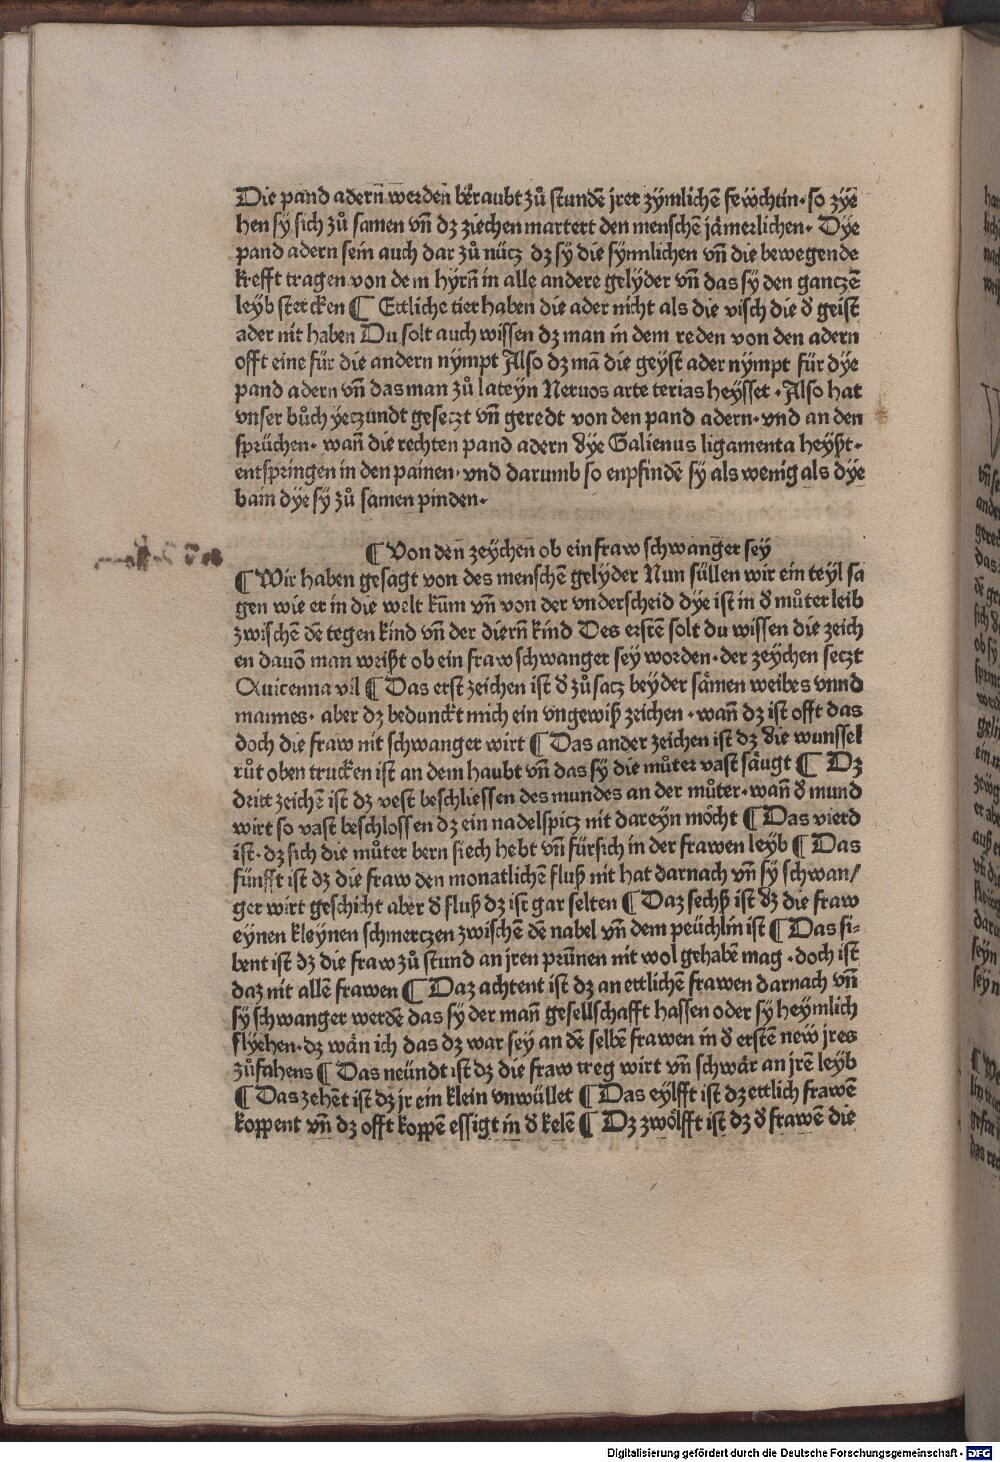 Die pand adern̄ werden beraubt zů stundē jrer zymlichē fewchtin· so zye
hen sy sich zů samen vn̄ dz ziechen martert den menschē jämerlichen· Dye
pand adern sein auch dar zů nücz dz sy die synnlichen vn̄ die bewegende
krefft tragen von dem hyrn̄ in alle andere gelyder vn̄ das sy den ganczē
leyb stercken ¶ Ettliche tier haben die ader nicht als die visch die ď geist
ader nit haben Du solt auch wissen dz man in dem reden von den adern
offt eine für die andern nympt Also dz mā die geyst ader nympt für dye
pand adern vn̄ das man zů lateyn Neruos arte terias heysset · Also hat
vnser bůch yeczundt geseczt vn̄ geredt von den pand adern· vnd an den
sprüchen· wan̄ die rechten pand adern dye Galienus ligamenta heyßt·
entspringen in den painen· vnd darumb so enpfindē sy als wenig als dye
bain dye sy zů samen pinden·
¶ Von den̄ zeychen ob ein fraw schwanger sey
¶ Wir haben gesagt von des menschē gelyder Nun süllen wir ein teyl sa
gen wie er in die welt kūm vn̄ von der vnderscheid dye ist in ď můter leib
zwischē dē tegen kind vn̄ der diern̄ kind Des erstē solt du wissen die zeich
en dauō man weißt ob ein fraw schwanger sey worden· der zeychen seczt
Auicenna vil ¶ Das erst zeichen ist ď zů sacz beyder sämen weibes vnnd
mannes· aber dz bedunckt mich ein vngewiß zeichen · wan̄ dz ist offt das
doch die fraw nit schwanger wirt ¶ Das ander zeichen ist dz die wunssel
růt oben trucken ist an dem haubt vn̄ das sy die můter vast säugt ¶ Dz
dritt zeichē ist dz vest beschliessen des mundes an der můter· wan̄ ď mund
wirt so vast beschlossen dz ein nadelspicz nit dareyn möcht ¶ Das vierd
ist· dz sich die můter bern siech hebt vn̄ fürsich in der frawen leyb ¶ Das
fünfft ist dz die fraw den monatlichē fluß nit hat darnach vn̄ sy schwan/
ger wirt geschicht aber ď fluß dz ist gar selten ¶ Daz sechst ist dz die fraw
eynen kleynen schmerczen zwischē dē nabel vn̄ dem peüchlin ist ¶ Das si-
bent ist dz die fraw zů stund an jren prün̄en nit wol gehabē mag · doch ist
daz nit allē frawen ¶ Daz achtent ist dz an ettlichē frawen darnach vn̄
sy schwanger werdē das sy der man̄ gesellschafft hassen oder sy heymlich
flyehen· dz wän ich das dz war sey an dē selbē frawen in ď erstē new jres
zůfahens ¶ Das neündt ist dz die fraw treg wirt vn̄ schwär an jrē leyb
¶ Das zehēt ist dz jr ein klein vnwüllet ¶ Das eylfft ist dz ettlich frawē
koppent vn̄ dz offt koppē essigt in ď kelē ¶ Dz zwölfft ist dz ď frawē die
Digitalisierung gefördert durch die Deutsche Forschungsgemeinschaft - DFG